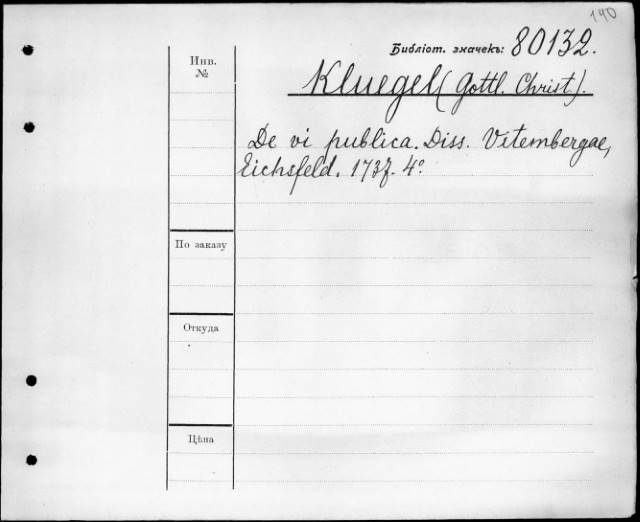 140
Библіот. значекъ: 80132.
Инв.
№
Kluegel (Gottl. Christ.).
De vi publica. Diss. Vitembergae,
Eichsfeld. 1737. 4º.
По заказу
Откуда
Цѣна